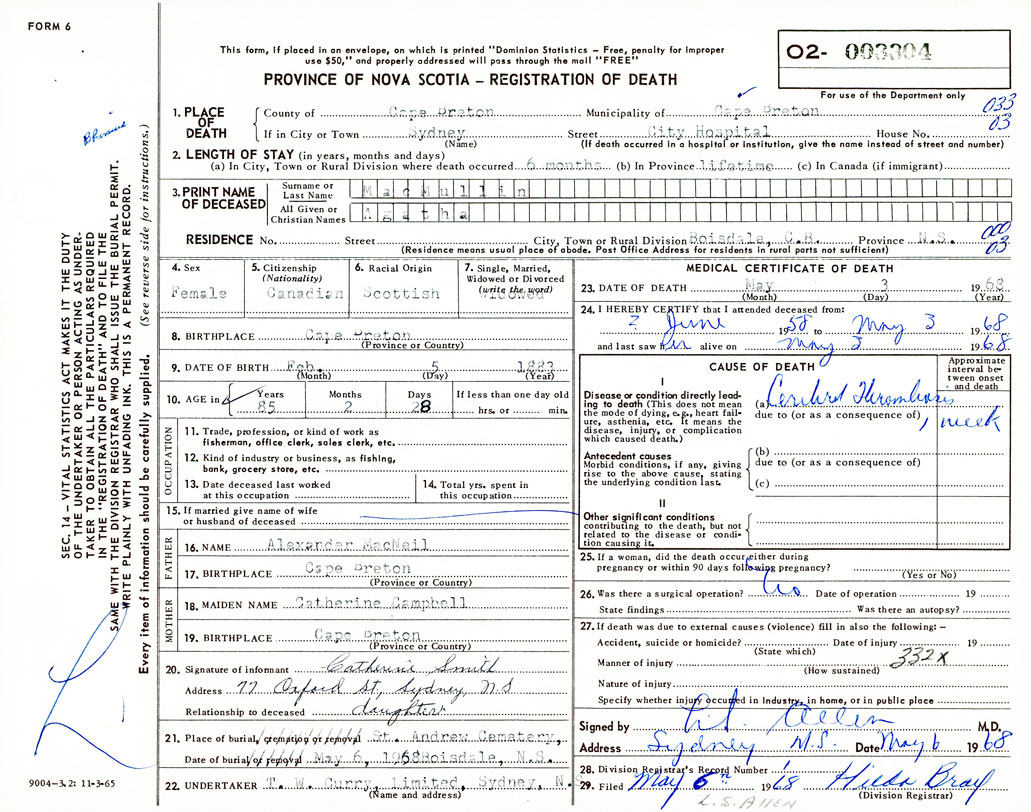 FORM 6
This form, if placed in an envelope, on which is printed "Dominion Statistics – Free, penalty for improper
use $50," and properly addressed will pass through the mail "FREE"
PROVINCE OF NOVA SCOTIA – REGISTRATION OF DEATH
02- 003304
For use of the Department only
033
03
1. PLACE OF DEATH
County of Cape Breton Municipality of Cape Breton
If in City or Town Sydney Street City Hospital House No.
(Name) (If death occurred in a hospital or institution, give the name instead of street and number)
2. LENGTH OF STAY (in years, months and days)
(a) In City, Town or Rural Division where death occurred 6 months (b) In Province lifetime (c) In Canada (if immigrant)
3. PRINT NAME OF DECEASED
Surname or Last Name MacMullin
All Given or Christian Names Agatha
RESIDENCE No. Street City, Town or Rural Division Boisdale, C.B. Province N.S.
(Residence means usual place of abode. Post Office Address for residents in rural parts not sufficient)
000
03
4. Sex Female
5. Citizenship (Nationality) Canadian
6. Racial Origin Scottish
7. Single, Married, Widowed or Divorced (write the word) Widowed
8. BIRTHPLACE Cape Breton
(Province or Country)
9. DATE OF BIRTH Feb. 5 1883
(Month) (Day) (Year)
10. AGE in Years Months Days If less than one day old
85 2 28 hrs. or min.
OCCUPATION
11. Trade, profession, or kind of work as
fisherman, office clerk, sales clerk, etc.
12. Kind of industry or business, as fishing,
bank, grocery store, etc.
13. Date deceased last worked
at this occupation
14. Total yrs. spent in
this occupation
15. If married give name of wife
or husband of deceased
FATHER
16. NAME Alexander MacNeil
17. BIRTHPLACE Cape Breton
(Province or Country)
MOTHER
18. MAIDEN NAME Catherine Campbell
19. BIRTHPLACE Cape Breton
(Province or Country)
20. Signature of informant Catherine Smith
Address 77 Oxford St, Sydney, N.S
Relationship to deceased daughter
21. Place of burial, cremation or removal St. Andrew Cemetary,
Date of burial or removal May 6, 1968 Boisdale, N.S.
22. UNDERTAKER T. W. Curry, Limited, Sydney, N.S
(Name and address)
MEDICAL CERTIFICATE OF DEATH
23. DATE OF DEATH May 3 1968
(Month) (Day) (Year)
24. I HEREBY CERTIFY that I attended deceased from:
? June 1958 to May 3 1968
and last saw her alive on May 3 1968
CAUSE OF DEATH
Approximate interval between onset and death
I
Disease or condition directly leading to death (This does not mean the mode of dying, e.g., heart failure, asthenia, etc. It means the disease, injury, or complication which caused death.)
(a) Cerebral Thrombosis
due to (or as a consequence of)
1 week
Antecedent causes
Morbid conditions, if any, giving rise to the above cause, stating the underlying condition last.
(b)
due to (or as a consequence of)
(c)
II
Other significant conditions
contributing to the death, but not related to the disease or condition causing it.
25. If a woman, did the death occur either during
pregnancy or within 90 days following pregnancy?
(Yes or No)
26. Was there a surgical operation? No Date of operation 19
State findings Was there an autopsy?
27. If death was due to external causes (violence) fill in also the following: –
Accident, suicide or homicide? Date of injury 19
(State which)
Manner of injury 332X
(How sustained)
Nature of injury
Specify whether injury occurred in Industry, in home, or in public place
Signed by Allen M.D.
Address Sydney N.S. Date May 6 1968
28. Division Registrar's Record Number
29. Filed May 6th 1968 Hilda Bray
(Division Registrar)
L.S. ALLEN
SEC. 14 – VITAL STATISTICS ACT MAKES IT THE DUTY
OF THE UNDERTAKER OR PERSON ACTING AS UNDER-
TAKER TO OBTAIN ALL THE PARTICULARS REQUIRED
IN THE "REGISTRATION OF DEATH" AND TO FILE THE
SAME WITH THE DIVISION REGISTRAR WHO SHALL ISSUE THE BURIAL PERMIT.
WRITE PLAINLY WITH UNFADING INK. THIS IS A PERMANENT RECORD.
Every item of information should be carefully supplied. (See reverse side for instructions.)
9004–3.2: 11-3-65